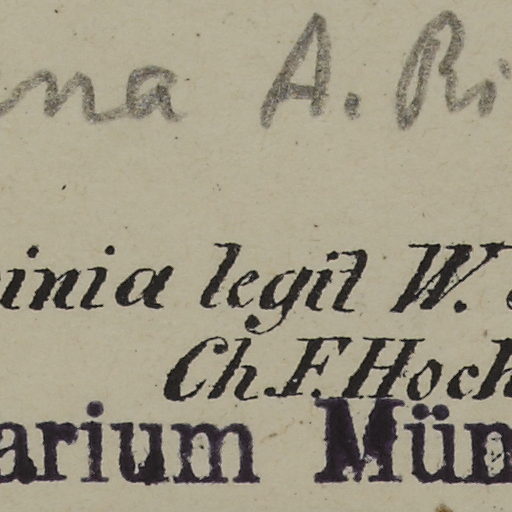 na A. Ri
inia legit W.
Ch. F. Hoch
arium Mün